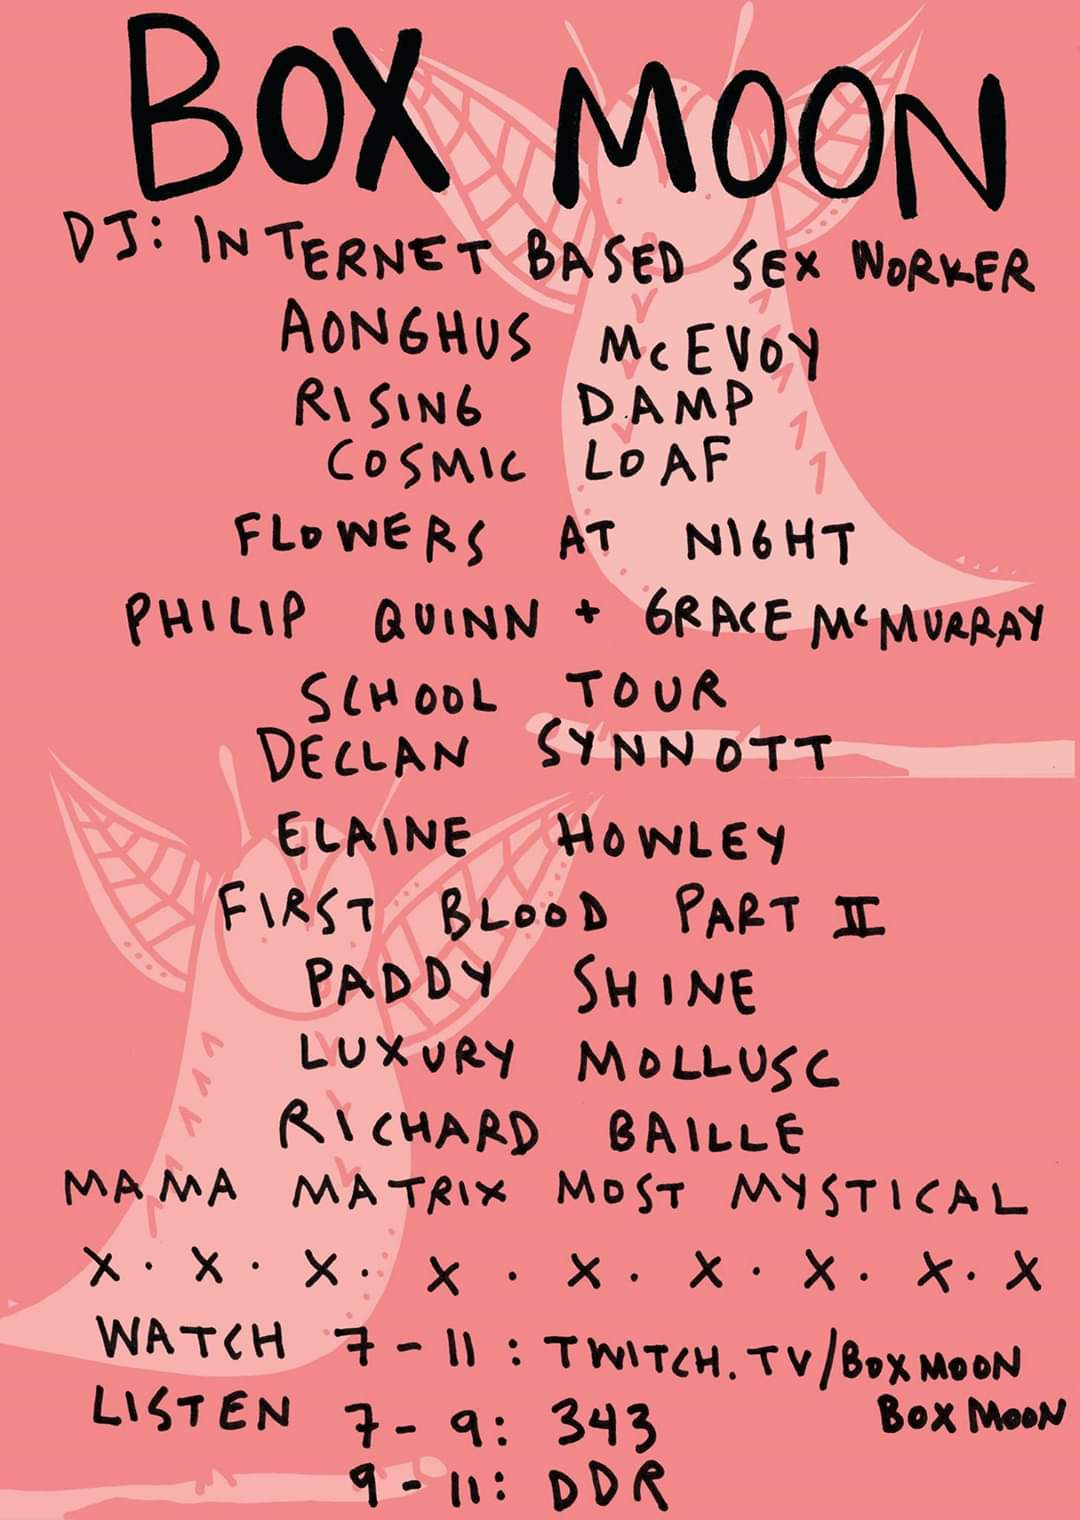 BOX MOON
DJ: INTERNET BASED SEX WORKER
AONGHUS McEVOY
RISING DAMP
COSMIC LOAF
FLOWERS AT NIGHT
PHILIP QUINN + GRACE McMURRAY
SCHOOL TOUR
DECLAN SYNNOTT
ELAINE HOWLEY
FIRST BLOOD PART II
PADDY SHINE
LUXURY MOLLUSC
RICHARD BAILLE
MAMA MATRIX MOST MYSTICAL
X . X . X . X . X . X . X . X . X
WATCH 7 - 11 : TWITCH.TV/BOXMOON
BOXMOON
LISTEN 7 - 9: 343
9 - 11: DDR